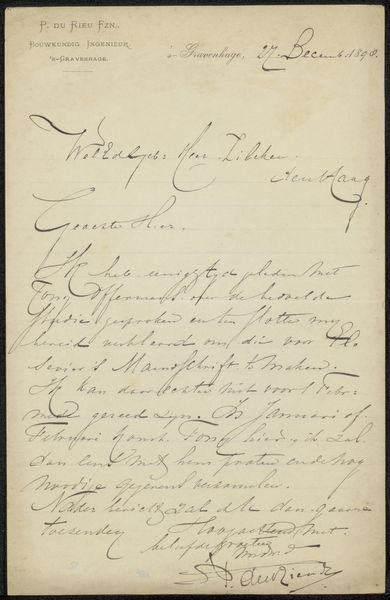 P. DU RIEU FZN.,
BOUWKUNDIG INGENIEUR
'S-GRAVENHAGE.
's-Gravenhage, 27 Decemb. 1890.
WelEdelgeb: Heer Zilcken
den Haag
Geachte Heer.
Ik heb eenigen tyd geleden met
Tony Offermans over de bedoelde
studie gesproken en ten slotte my
bereid verklaard om die voor Els
sevier's Maandschrift te maken.
Ik kan daar echter niet voor 1 Febr-
mede gereed zyn. In Januari of
Februari komt Tony hier, ik zal
dan eens met hem praten en de nog
noodige gegevens verzamelen.
Nader bericht zal ik dan gaarne
toezenden Hoogachtend met
beleefde groeten
P. du Rieu Fz